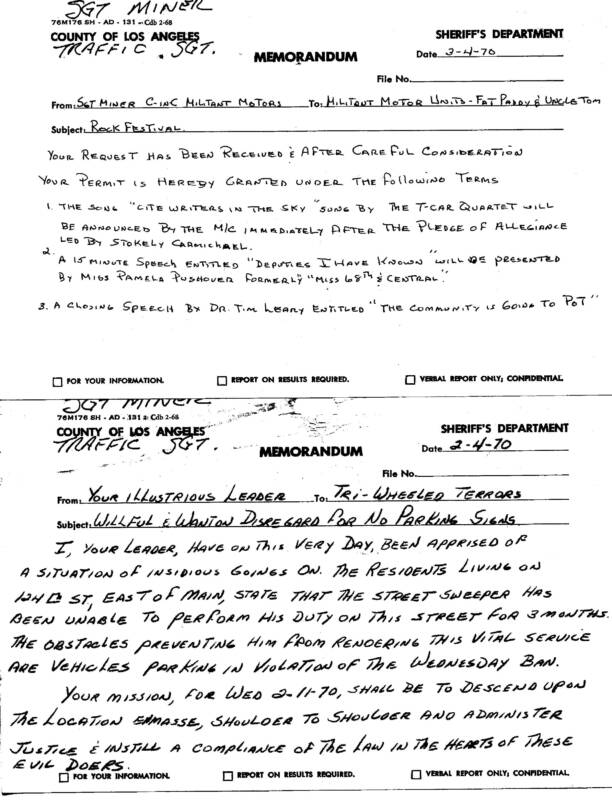 SGT MINER
76M176 SH - AD - 131 - Cdb 2-68
COUNTY OF LOS ANGELES
SHERIFF'S DEPARTMENT
TRAFFIC. SGT.
MEMORANDUM
Date 3-4-70
File No.
From: SGT MINER C-INC MILTANT MOTORS To: MILITANT MOTOR UNITS - FAT PADDY & UNCLE TOM
Subject: ROCK FESTIVAL
YOUR REQUEST HAS BEEN RECEIVED & AFTER CAREFUL CONSIDERATION
YOUR PERMIT IS HEREBY GRANTED UNDER THE FOLLOWING TERMS
1. THE SONG "CITE WRITERS IN THE SKY" SUNG BY THE T-CAR QUARTET WILL
BE ANNOUNCED BY THE M/C IMMEDIATELY AFTER THE PLEDGE OF ALLEGIANCE
LED BY STOKELY CARMICHAEL.
2. A 15 MINUTE SPEECH ENTITLED "DEPUTIES I HAVE KNOWN" WILL BE PRESENTED
BY MISS PAMELA PUSHOVER FORMERLY "MISS 68TH & CENTRAL".
3. A CLOSING SPEECH BY DR. TIM LEARY ENTITLED "THE COMMUNITY IS GOING TO POT"
FOR YOUR INFORMATION. REPORT ON RESULTS REQUIRED. VERBAL REPORT ONLY; CONFIDENTIAL.
SGT MINER
76M176 SH - AD - 131 - Cdb 2-68
COUNTY OF LOS ANGELES
SHERIFF'S DEPARTMENT
TRAFFIC SGT.
MEMORANDUM
Date 2-4-70
File No.
From: YOUR ILLUSTRIOUS LEADER To: TRI-WHEELED TERRORS
Subject: WILLFUL & WANTON DISREGARD FOR NO PARKING SIGNS
I, YOUR LEADER, HAVE ON THIS VERY DAY, BEEN APPRISED OF
A SITUATION OF INSIDIOUS GOINGS ON. THE RESIDENTS LIVING ON
ST, EAST OF MAIN, STATE THAT THE STREET SWEEPER HAS
BEEN UNABLE TO PERFORM HIS DUTY ON THIS STREET FOR 3 MONTHS.
THE OBSTACLES PREVENTING HIM FROM RENDERING THIS VITAL SERVICE
ARE VEHICLES PARKING IN VIOLATION OF THE WEDNESDAY BAN.
YOUR MISSION, FOR WED 2-11-70, SHALL BE TO DESCEND UPON
THE LOCATION ENMASSE, SHOULDER TO SHOULDER AND ADMINISTER
JUSTICE & INSTILL A COMPLIANCE OF THE LAW IN THE HEARTS OF THESE
EVIL DOERS.
FOR YOUR INFORMATION. REPORT ON RESULTS REQUIRED. VERBAL REPORT ONLY; CONFIDENTIAL.